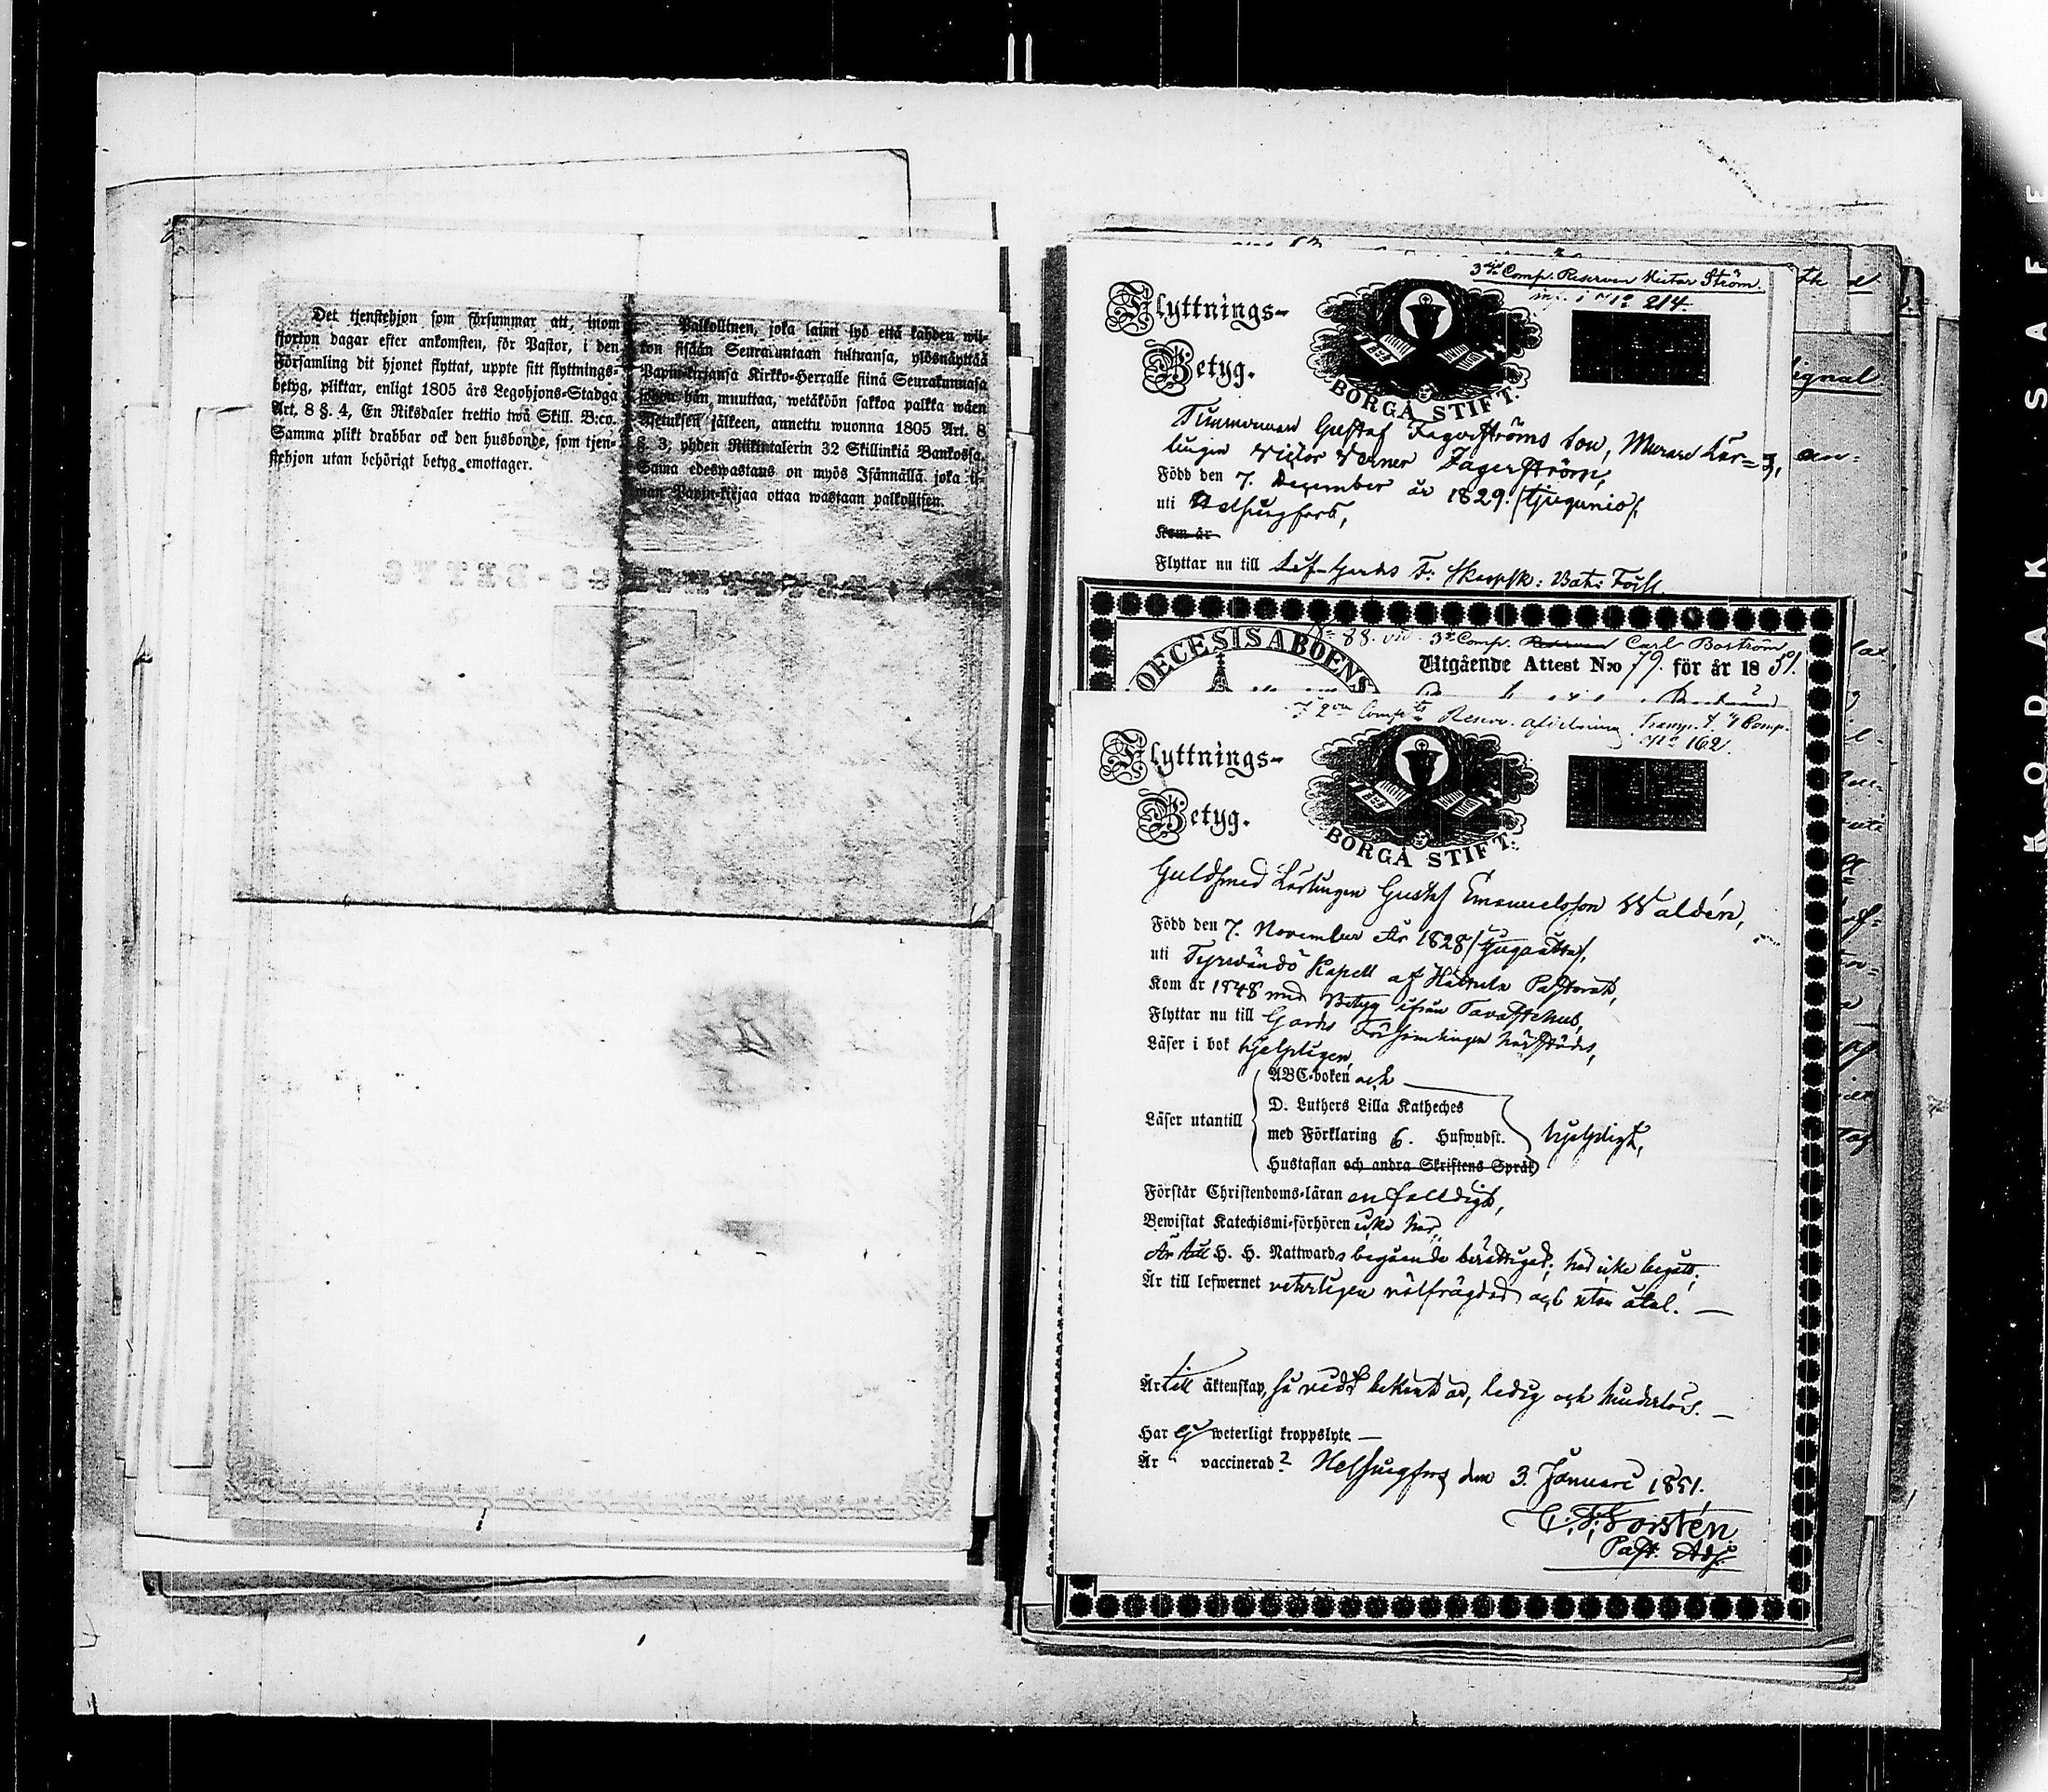 Det tjenstehjon som försummar att, inom
fjorton dagar efter ankomsten, för Pastor, i den
Församling dit hjonet flyttat, uppte sitt flyttnings-
betyg, pliktar, enligt 1805 års Legohjons-Stadga
Art. 8 §. 4, En Riksdaler trettio twå Skill. B:co.
Samma plikt drabbar ock den husbonde, som tjen-
stehjon utan behörigt betyg emottager.
Palkollinen, joka laimi lyö että kahden wii-
kon sisään Seurakuntaan tultuansa, ylösnäyttää
Papin-kirjansa Kirkko-Herralle siinä Seurakunnassa
johon hän muuttaa, wetäköön sakkoa palkka wäen
Asetuksen jälkeen, annettu wuonna 1805 Art. 8
§. 3, yhden Riikintalerin 32 Skillinkiä Bankossa.
Sama edeswastaus on myös Isännällä joka il-
man Papin-kirjaa ottaa wastaan palkollisen.
3die Comp. Reserven Victor Ström
in. i No 214.
Flyttnings-
Betyg.
BORGÅ STIFT.
Timmerman Gustaf Fagerströms Son, Murare Lär-
lingen Victor Verner Fagerström,
Född den 7. December år 1829. /tjugunio/,
uti Helsingfors,
Kom år
Flyttar nu till Lif-Gardes F: Skarpsk: Bat: Förs
DIOECESIS ABOENS
No 88. 3e Comp. Carl Boström
Utgående Attest N:o 79. för år 1851.
Reserv. afdelning Transp. t. 4 Comp.
No 162.
Flyttnings-
Betyg.
BORGÅ STIFT.
Guldsmed Lärlingen Gustaf Emanuelsson Waldén,
Född den 7. November År 1828 /tjuguåtta/,
uti Tyrwändö Kapell af Hattula Pastorat,
Kom år 1848 med Betyg ifrån Tavastehus,
Flyttar nu till Gardes Församlingen härstädes,
Läser i bok hjelpligen,
ABC-boken och
D. Luthers Lilla Katheches
Läser utantill
med Förklaring 6. Hufwudst. hjelpligt,
Hustaflan och andra Skriftens Språk
Förstår Christendoms-läran enfalldigt,
Bewistat Katechismi-förhören icke här,
Är till H. H. Nattwards begående berättigad; här icke begått;
Är till lefwernet veterligen välfrägdad och utan åtal.
Är till äktenskap, så vidt bekant är, ledig och hinderlös.
Har ej weterligt kroppslyte
Är vaccinerad? Helsingfors den 3. Januari 1851.
C. F. Forstén
Past. Adj.
KODAK SAFE